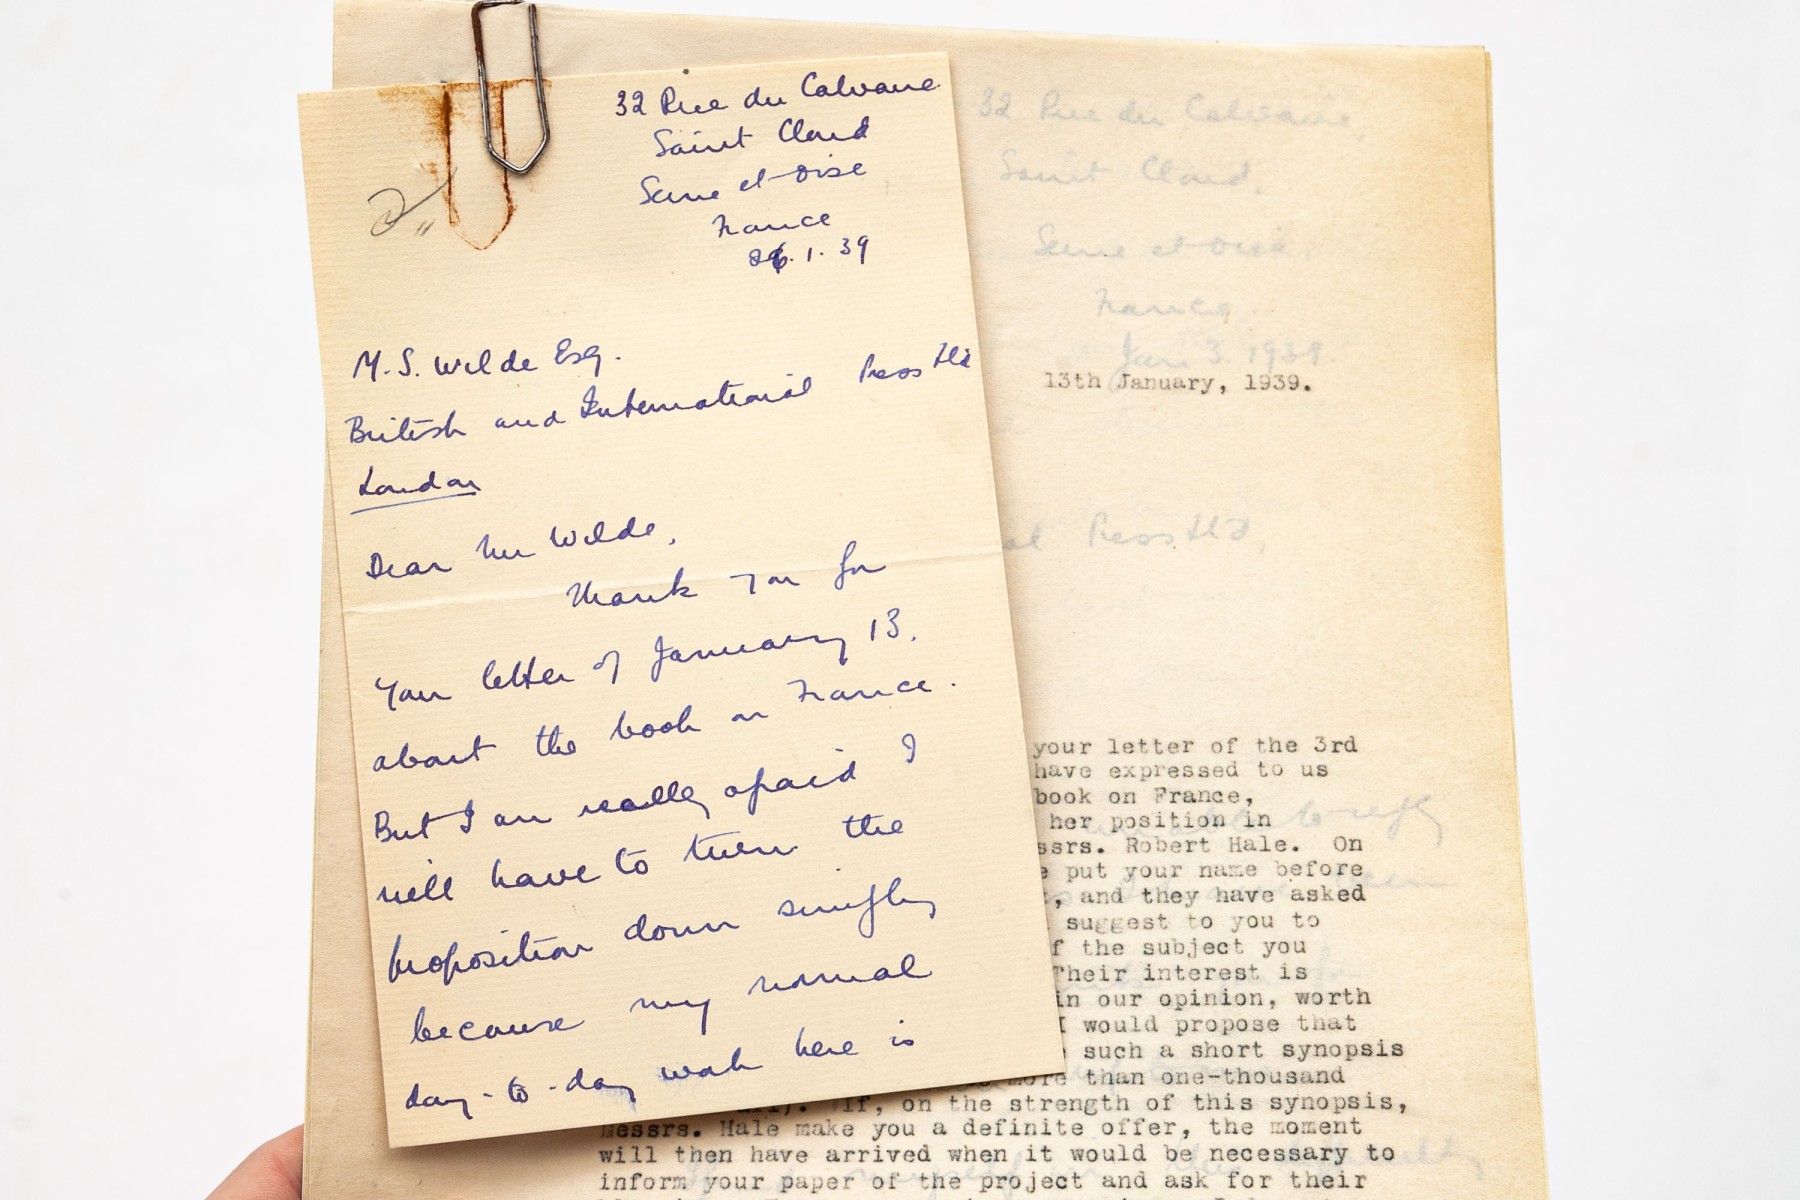 32 Rue du Calvaire
Saint Cloud
Seine et Oise
France
26.1.39
M.S. Wilde Esq.
British and International Press Ltd
London
Dear Mr Wilde,
Thank you for
your letter of January 13.
about the book on France.
But I am really afraid I
will have to turn the
proposition down simply
because my normal
day-to-day work here is
32 Rue du Calvaire,
Saint Cloud,
Seine et Oise,
France
Jan 3. 1939.
13th January, 1939.
Press Ltd,
your letter of the 3rd
have expressed to us
book on France,
her position in
ssrs. Robert Hale. On
put your name before
, and they have asked
suggest to you to
f the subject you
Their interest is
in our opinion, worth
I would propose that
such a short synopsis
more than one-thousand
If, on the strength of this synopsis,
Messrs. Hale make you a definite offer, the moment
will then have arrived when it would be necessary to
inform your paper of the project and ask for their